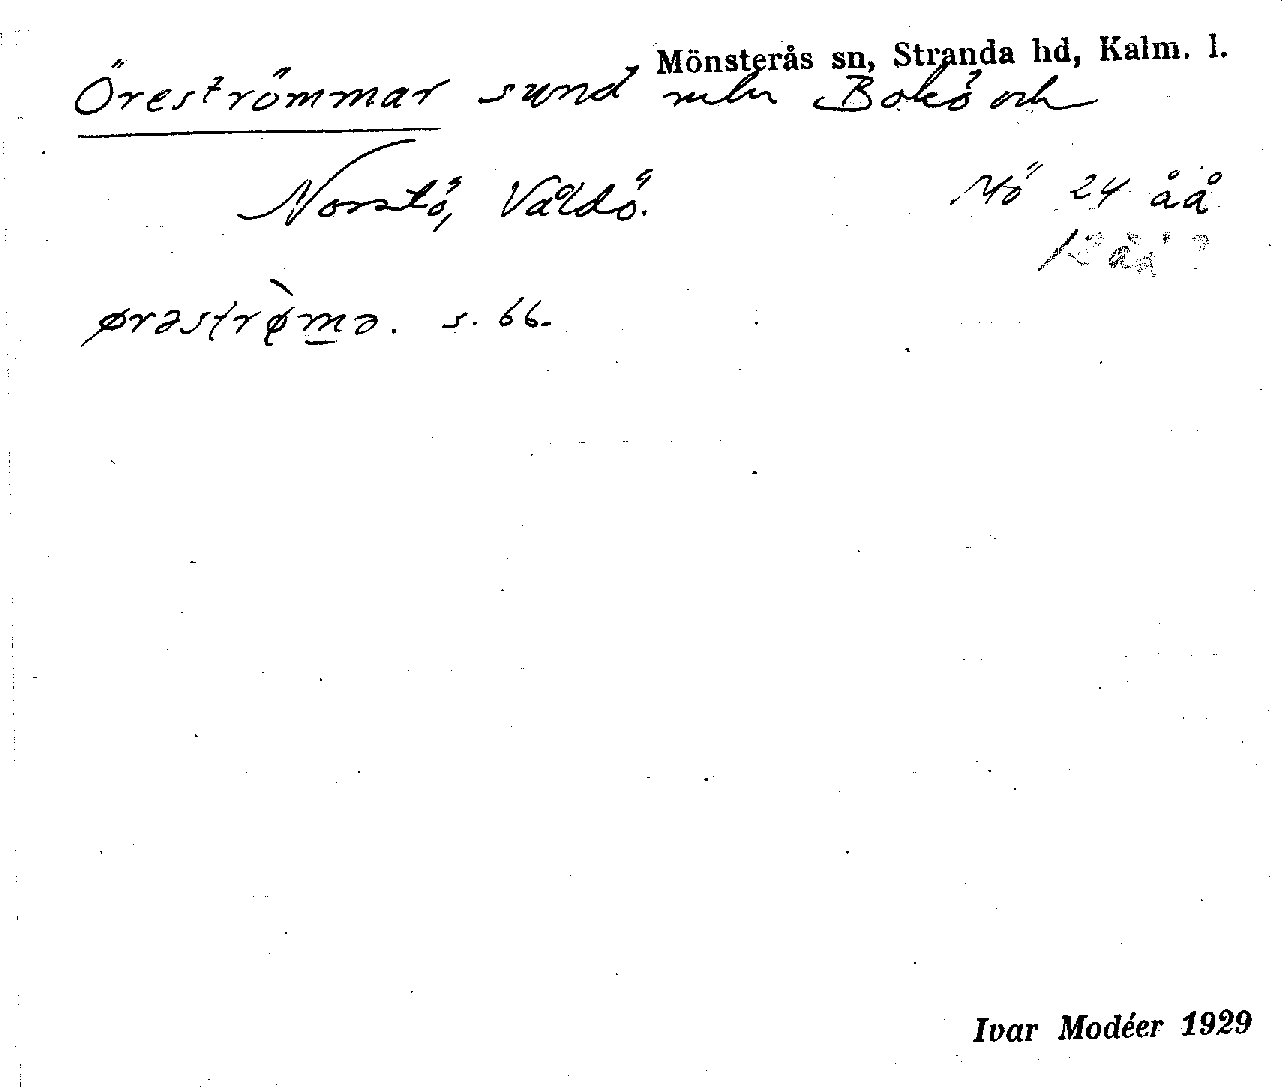 Mönsterås sn, Stranda hd, Kalm. l.
Öreströmmar sund mln Bokö och
Norstö, Våldö. Mö 24 åå
12 åå ?
ørəstrø̀mə. s. 66.
Ivar Modéer 1929